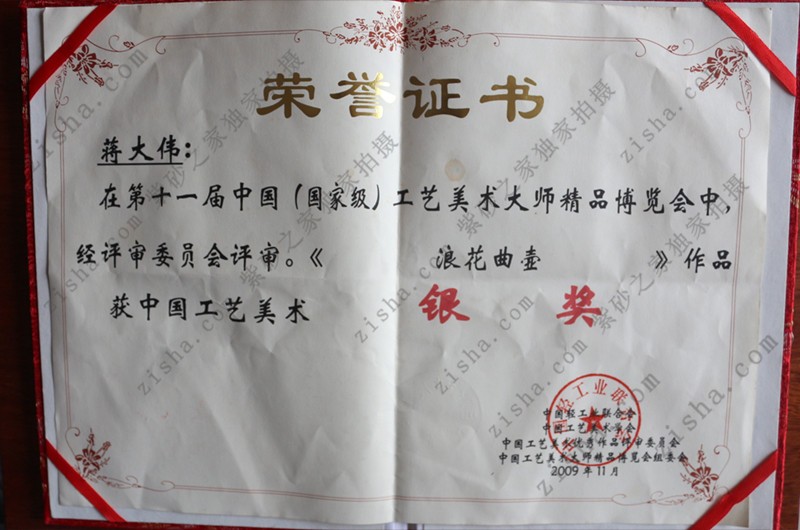 荣誉证书
蒋大伟：
在第十一届中国（国家级）工艺美术大师精品博览会中，
经评审委员会评审。《 浪花曲壶 》作品
获中国工艺美术 银奖
中国轻工业联合会
中国工艺美术学会
中国工艺美术优秀作品评审委员会
中国工艺美术大师精品博览会组委会
2009年11月
紫砂之家独家拍摄
zisha.com